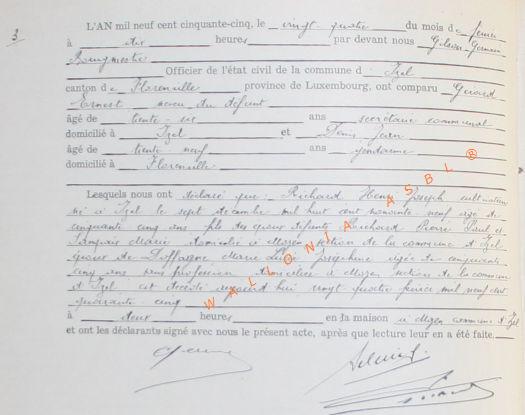 3
L'AN mil neuf cent cinquante-cinq, le vingt quatre du mois de
à dix heures par devant nous Gilson Germain
Bourgmestre
Officier de l'état civil de la commune d'Izel
canton de Florenville province de Luxembourg, ont comparu Guiard
Ernest neveu du défunt
âgé de trente-six ans secrétaire communal
domicilié à Izel et Denis Jean
âgé de trente neuf ans gendarme
domicilié à Florenville
Lesquels nous ont déclaré que Richard Henri Joseph cultivateur
né à Izel le sept décembre mil huit cent nonante neuf âgé de
cinquante cinq ans fils des époux défunts Richard Pierre Paul et
François Marie domicilié à Moyen section de la commune d'Izel
époux de Marie Lucie Joséphine âgée de cinquante
cinq ans sans profession domiciliée à Moyen section de la commune
d'Izel est décédé aujourd'hui vingt quatre mil neuf cent
cinq
à deux heures en la maison à Moyen commune d'Izel
et ont les déclarants signé avec nous le présent acte, après que lecture leur en a été faite.
WALLONIA ASBL ®